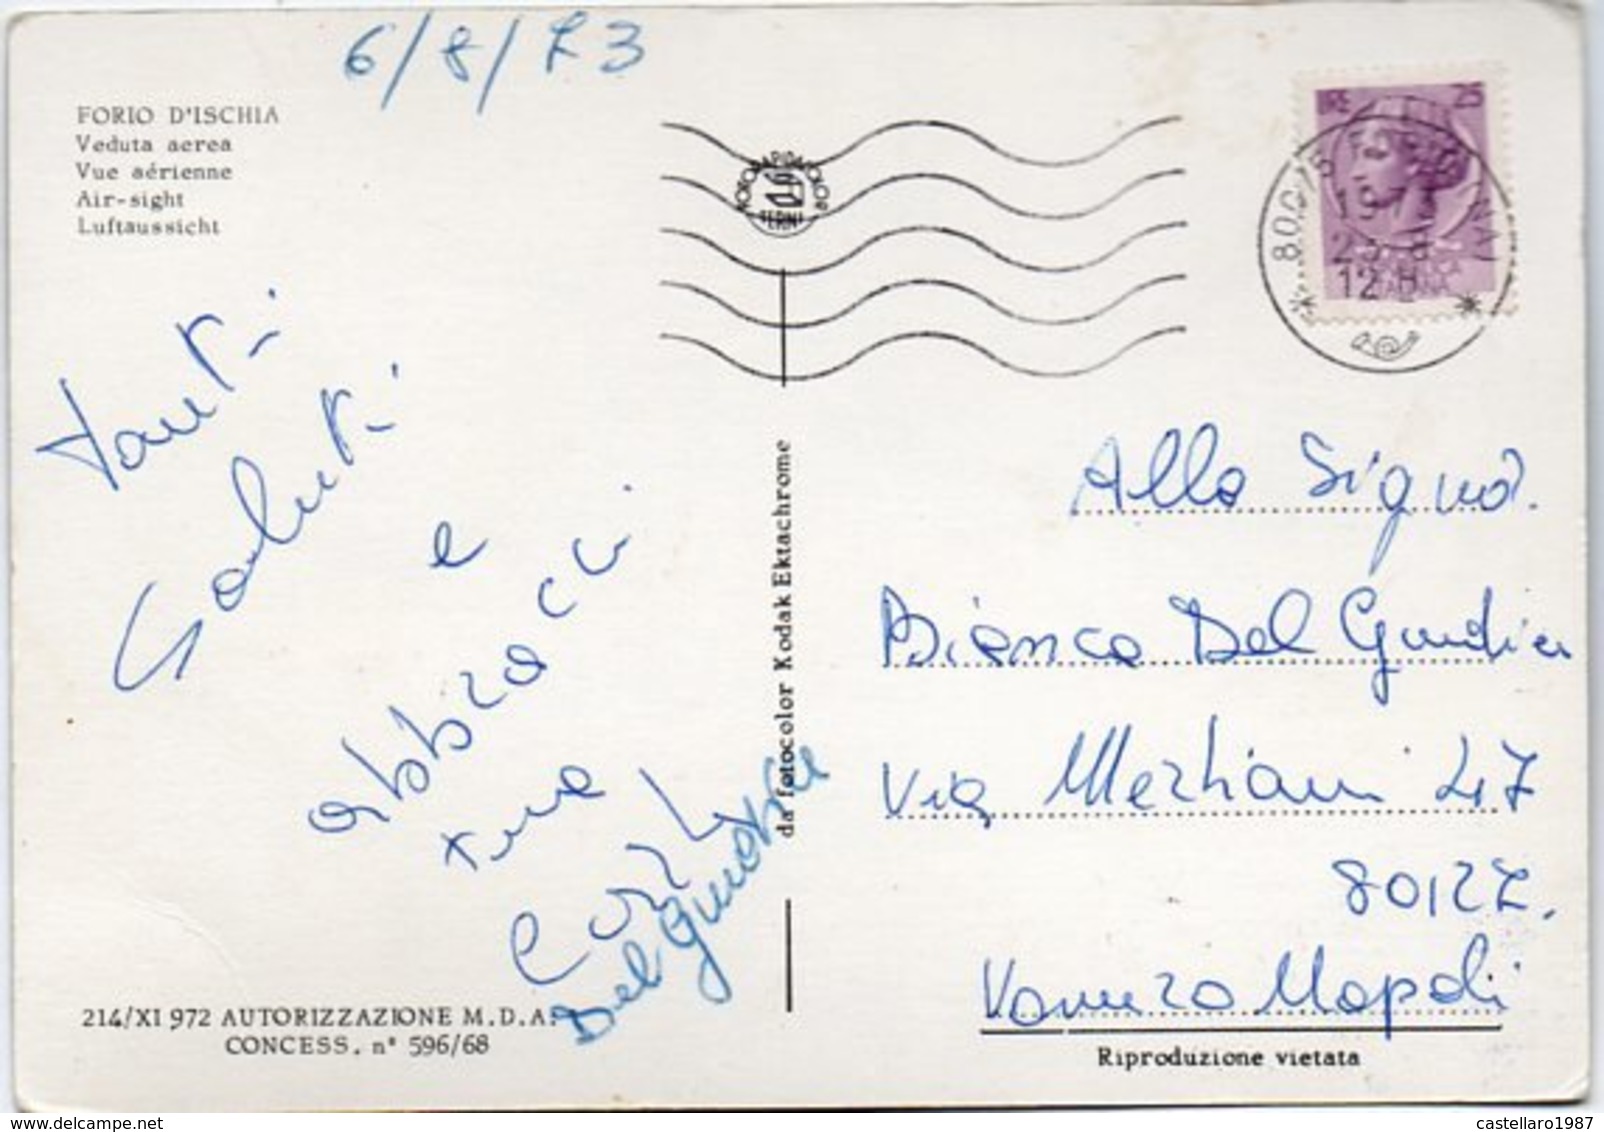 6/8/73
FORIO D'ISCHIA
Veduta aerea
Vue aérienne
Air-sight
Luftaussicht
Tanti
Saluti
e
abbracci
LIRE 25
80075 FORIO (NA)
12 H
TERNI
da fotocolor Kodak Ektachrome
Alla Signora
Bianca Del Giudice
Via Merliani 47
80127.
Vomero Napoli
Del
214/XI 972 AUTORIZZAZIONE M.D.A.
CONCESS. n° 596/68
Riproduzione vietata
castellaro1987